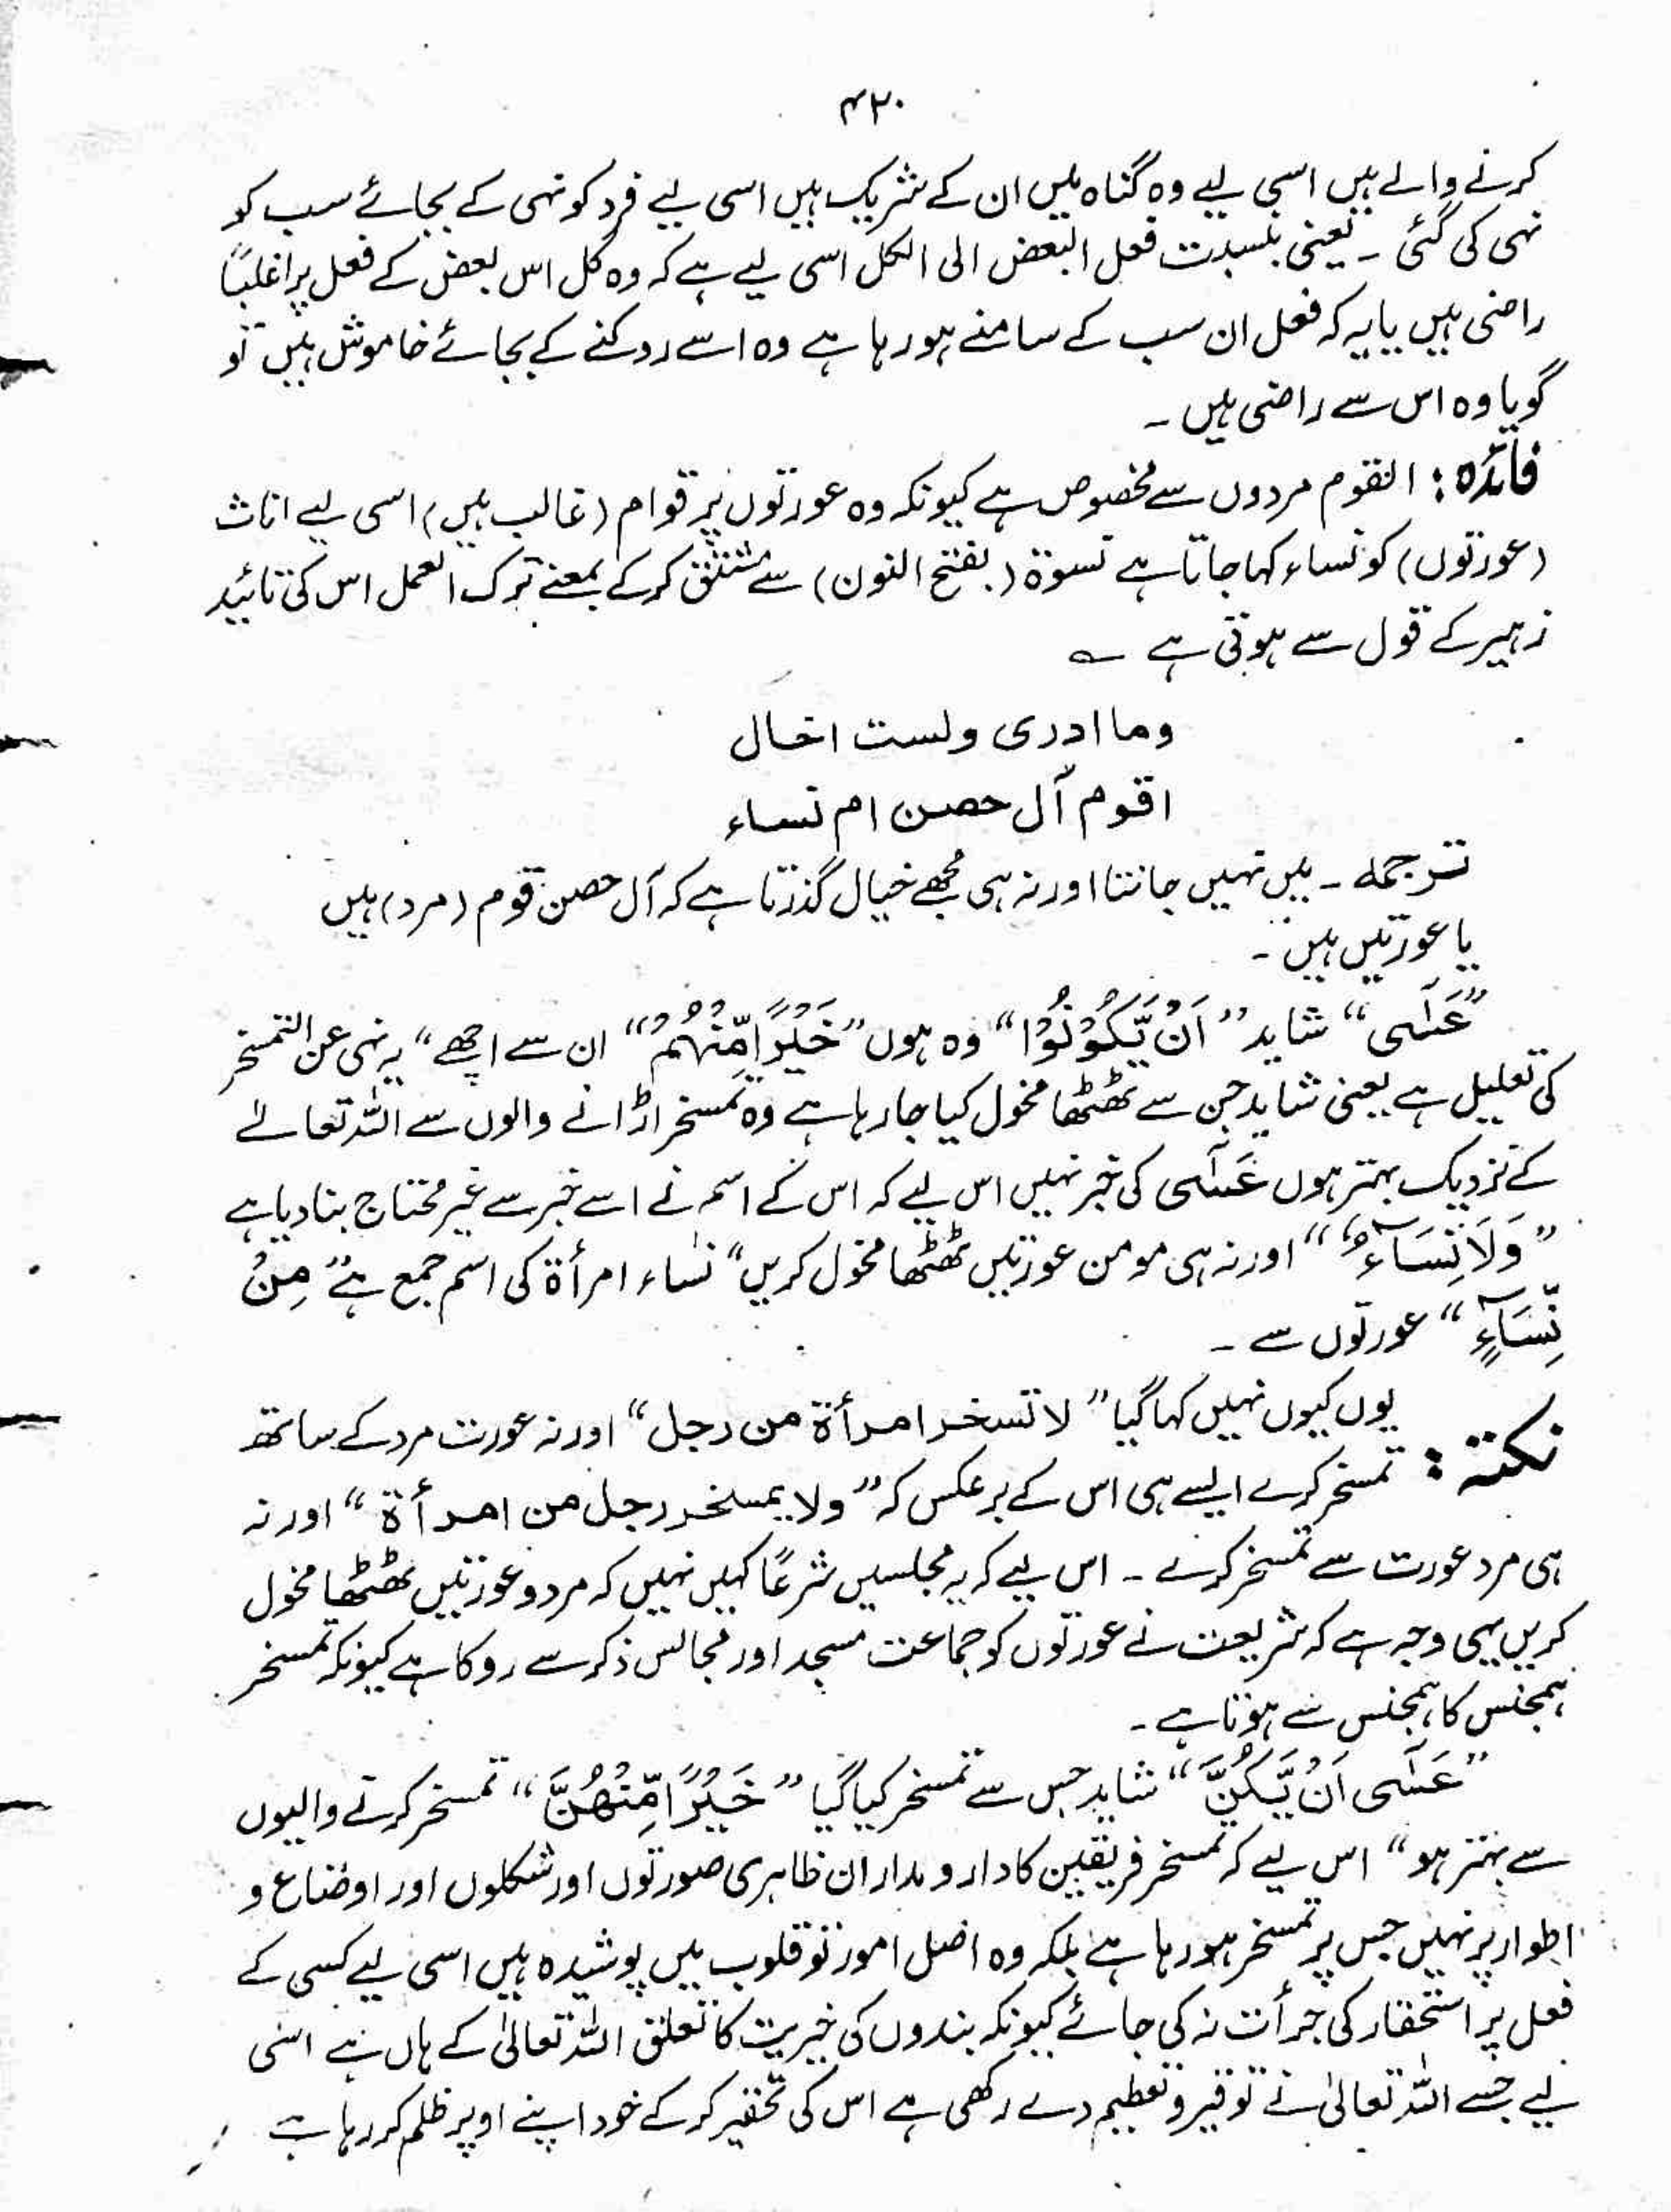 ۴۲۰
کرنے والے ہیں اسی لیے وہ گناہ میں ان کے شریک ہیں اسی لیے فرد کو نہی کے بجائے سب کو
نہی کی گئی ۔ یعنی بنسبت فعل البعض الی الکل اسی لیے ہے کہ وہ کل اس بعض کے فعل پر اغلباً
راضی ہیں یا یہ کہ فعل ان سب کے سامنے ہو رہا ہے وہ اسے روکنے کے بجائے خاموش ہیں تو
گویا وہ اس سے راضی ہیں ۔
فائدہ : القوم مردوں سے مخصوص ہے کیونکہ وہ عورتوں پر قوام (غالب ہیں) اسی لیے اناث
(عورتوں) کو نساء کہا جاتا ہے نسوۃ (بفتح النون) سے مشتق کر کے بمعنے ترک العمل اس کی تائید
زہیر کے قول سے ہوتی ہے ؎
وما ادری ولست اخال
اقوم آل حصن ام نساء
ترجمہ ۔ میں نہیں جانتا اور نہ ہی مجھے خیال گذرتا ہے کہ آل حصن قوم (مرد) ہیں
یا عورتیں ہیں ۔
”عَسٰٓی“ شاید ”اَنْ یَّکُوْنُوْا“ وہ ہوں ”خَیْرًا مِّنْهُمْ“ ان سے اچھے“ یہ نہی عن التمسخر
کی تعلیل ہے یعنی شاید جن سے ٹھٹھا مخول کیا جا رہا ہے وہ تمسخر اڑانے والوں سے اللہ تعالےٰ
کے نزدیک بہتر ہوں عَسٰٓی کی خبر نہیں اس لیے کہ اس کے اسم نے اسے خبر سے غیر محتاج بنا دیا ہے
”وَلَا نِسَآءٌ“ اور نہ ہی مومن عورتیں ٹھٹھا مخول کریں“ نساء امرأۃ کی اسم جمع ہے ”مِنْ
نِّسَآءٍ“ عورتوں سے ۔
نکتہ : یوں کیوں نہیں کہا گیا ”لا تسخر امرأۃ من رجل“ اور نہ عورت مرد کے ساتھ
تمسخر کرے ایسے ہی اس کے برعکس کہ ”ولا یمسخر رجل من امرأۃ“ اور نہ
ہی مرد عورت سے تمسخر کرے ۔ اس لیے کہ یہ مجلسیں شرعاً کہیں نہیں کہ مرد و عورتیں ٹھٹھا مخول
کریں یہی وجہ ہے کہ شریعت نے عورتوں کو جماعت مسجد اور مجالس ذکر سے روکا ہے کیونکہ تمسخر
ہمجنس کا ہمجنس سے ہوتا ہے ۔
”عَسٰٓی اَنْ یَّکُنَّ“ شاید جس سے تمسخر کیا گیا ”خَیْرًا مِّنْهُنَّ“ تمسخر کرنے والیوں
سے بہتر ہو“ اس لیے کہ تمسخر فریقین کا دار و مدار ان ظاہری صورتوں اور شکلوں اور اوضاع و
اطوار پر نہیں جس پر تمسخر ہو رہا ہے بلکہ وہ اصل امور تو قلوب میں پوشیدہ ہیں اسی لیے کسی کے
فعل پر استحقار کی جرأت نہ کی جائے کیونکہ بندوں کی خیریت کا تعلق اللہ تعالیٰ کے ہاں ہے اسی
لیے جسے اللہ تعالیٰ نے توقیر و تعظیم دے رکھی ہے اس کی تحقیر کر کے خود اپنے اوپر ظلم کر رہا ہے